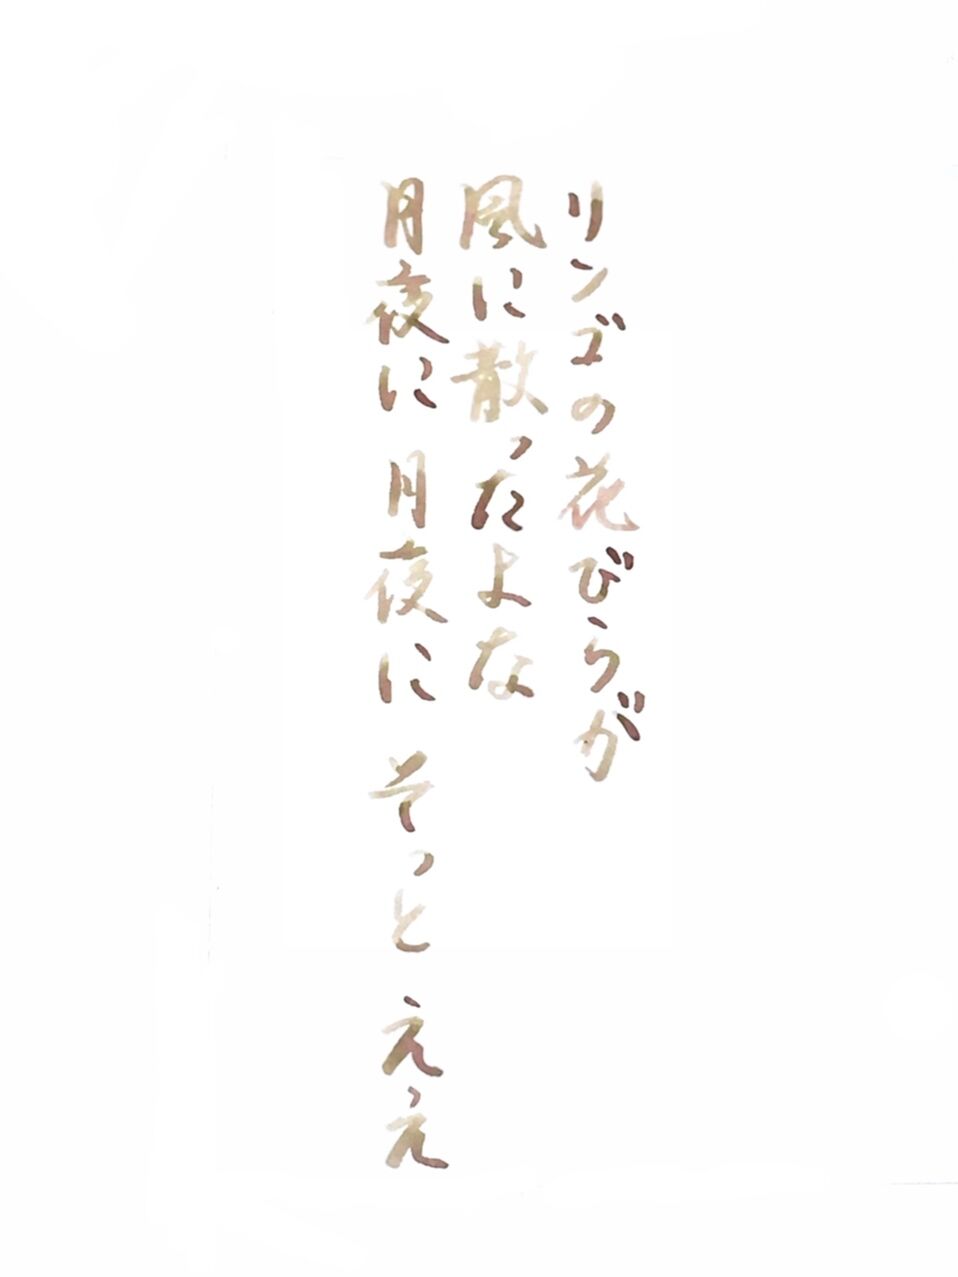 リンゴの花びらが
風に散ったよな
月夜に 月夜に そっと えゝえ